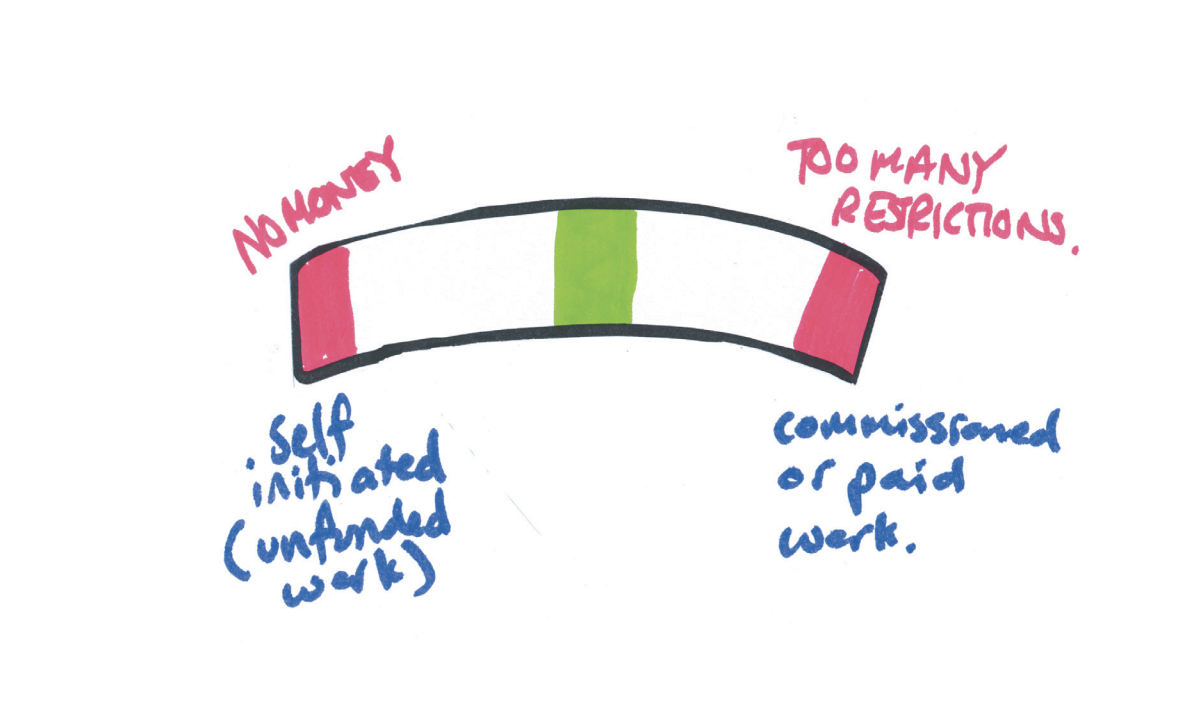 NO MONEY
TOO MANY
RESTRICTIONS.
. Self
initiated
(unfunded
work)
commissioned
or paid
work.